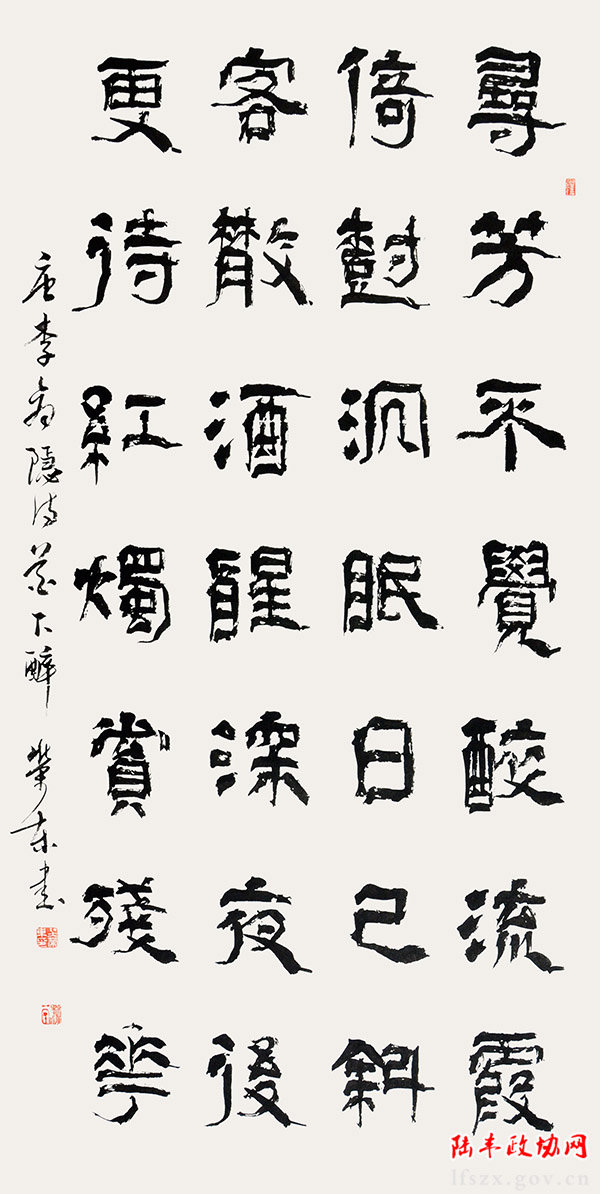 尋芳不覺醉流霞
倚樹沉眠日已斜
客散酒醒深夜後
更待紅燭賞殘華
唐李商隱詩花下醉 書
陆丰政协网
lfszx.gov.cn